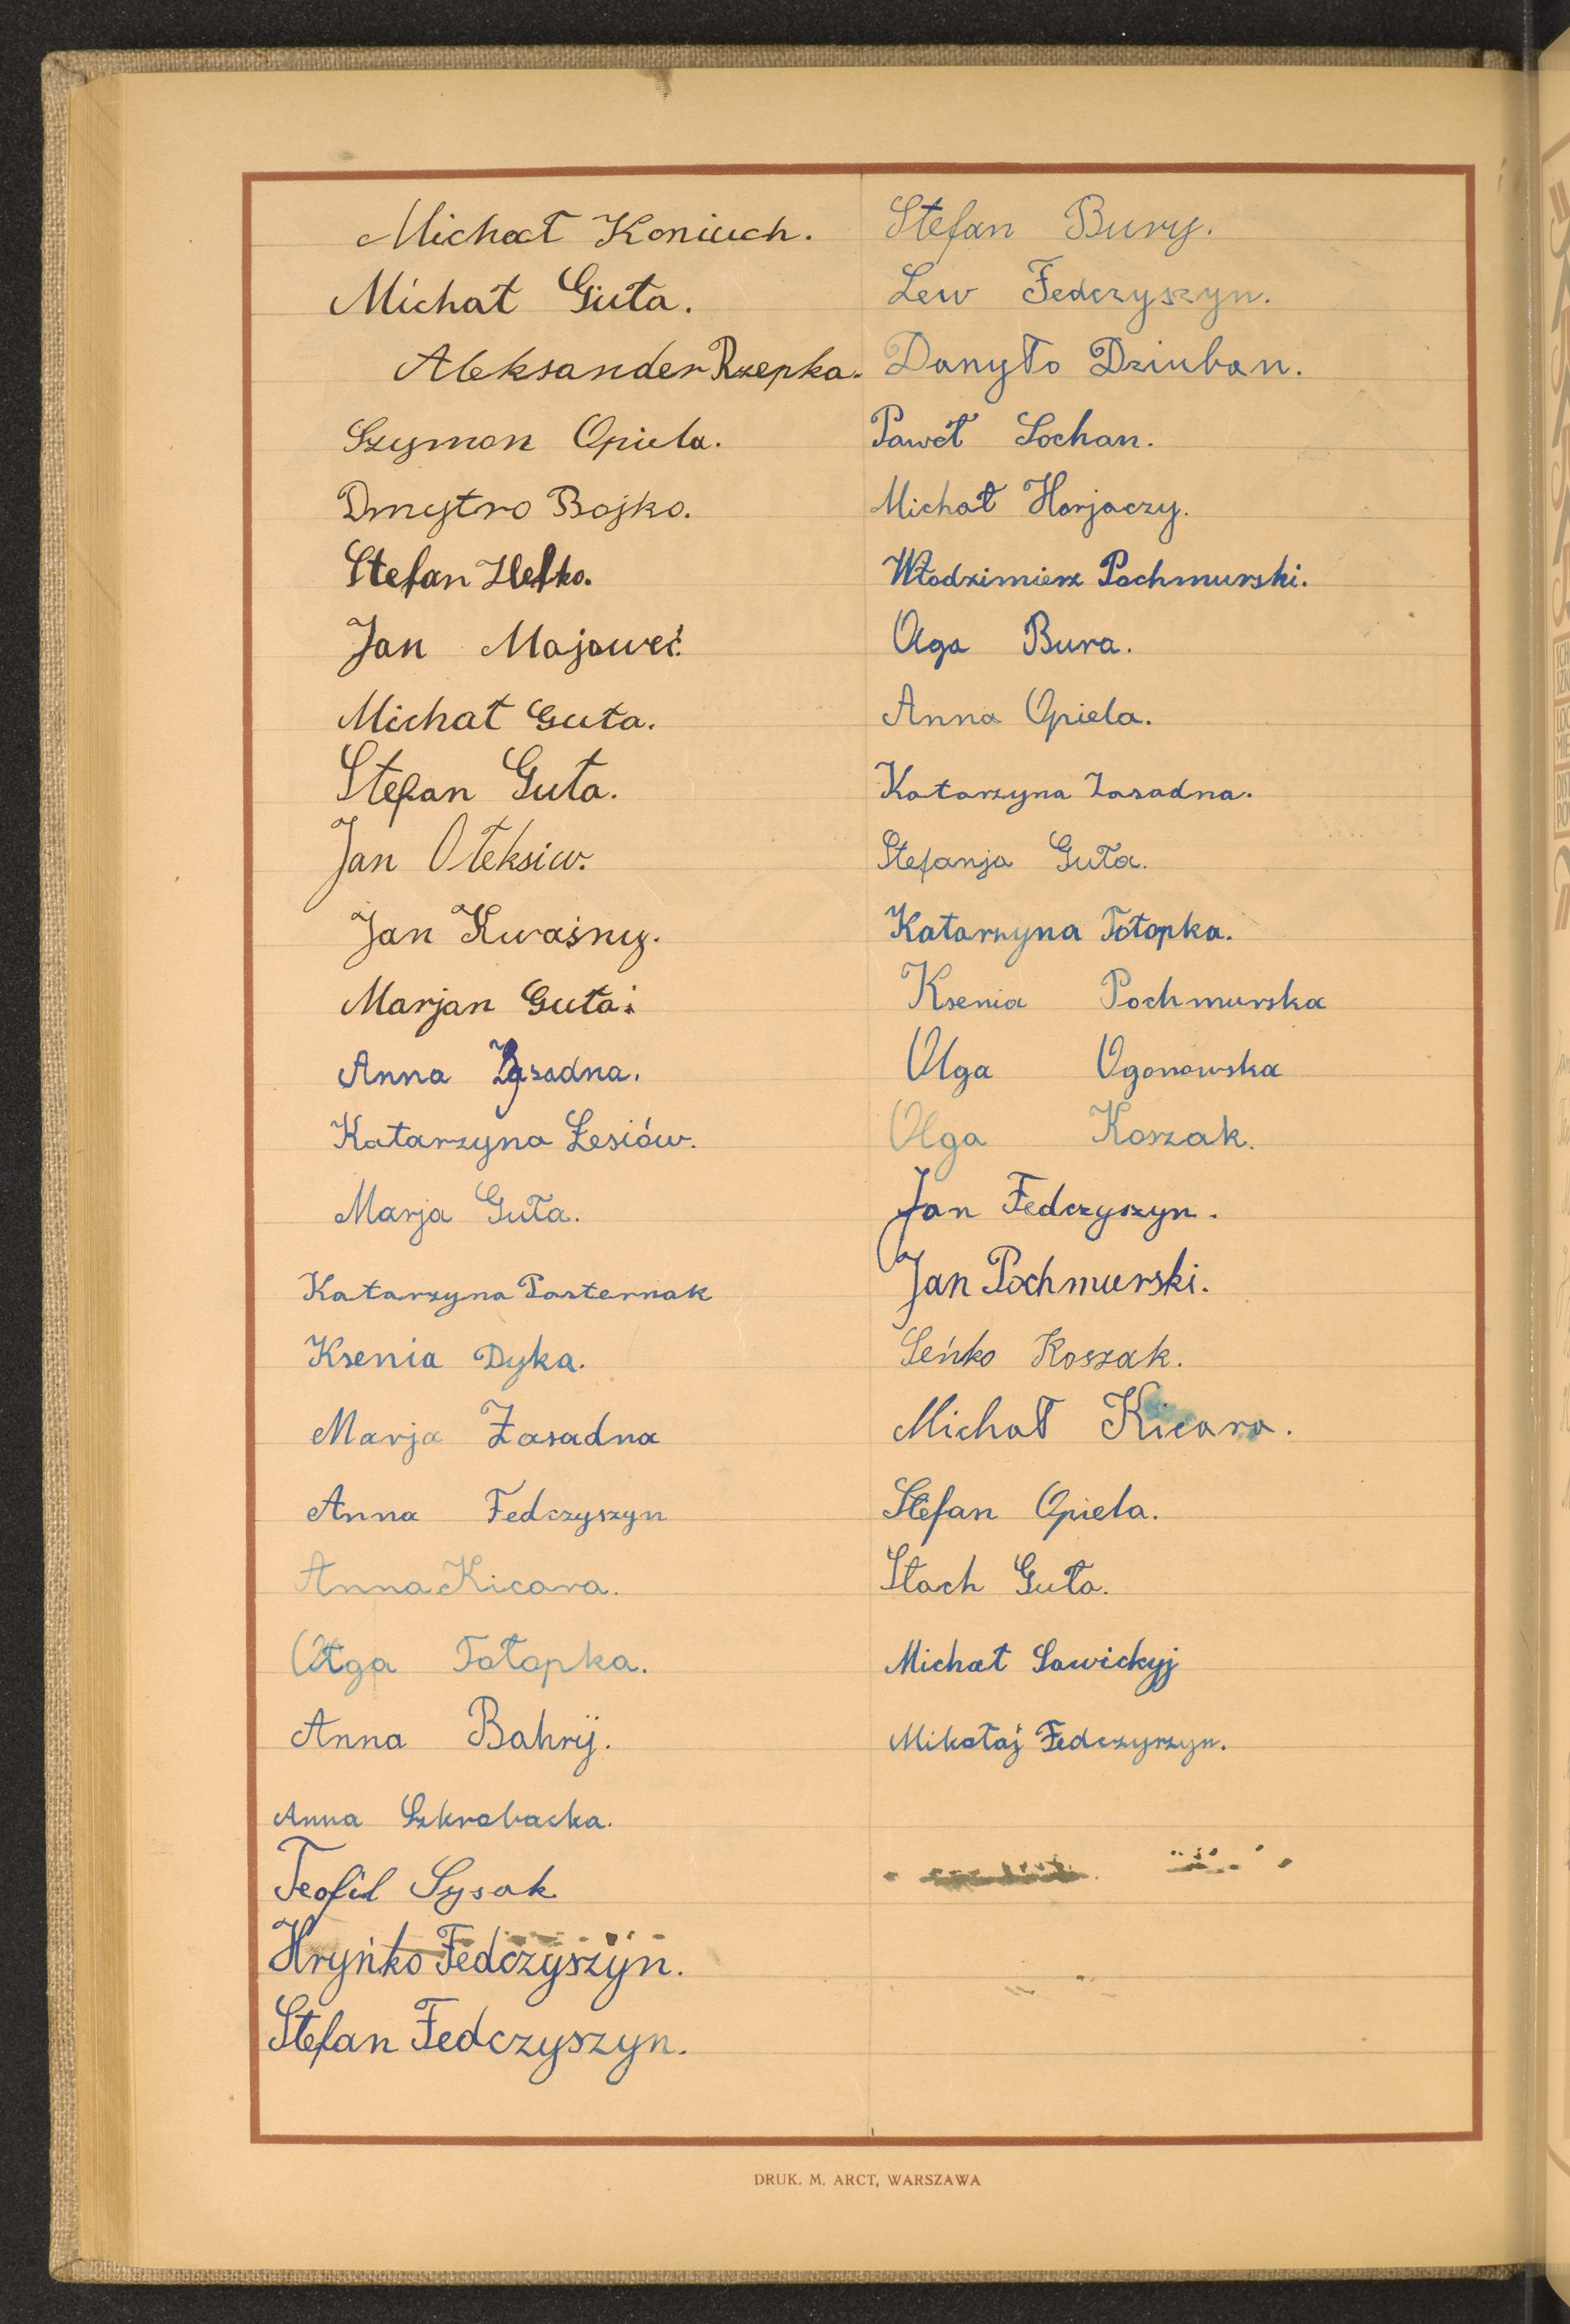 Michał Koniuch.
Michał Guta.
Aleksander Rzepka.
Szymon Opiela.
Dmytro Bojko.
Stefan Hełko.
Jan Majoweć.
Michał Guta.
Stefan Guta.
Jan Ołeksiw.
Jan Kwaśny.
Marjan Guta.
Anna Zasadna.
Katarzyna Łesiów.
Marja Guta.
Katarzyna Pasternak
Ksenia Dyka.
Marja Zasadna
Anna Fedczyszyn
Anna Kicara.
Olga Tołopka.
Anna Bahrij.
Anna Szkrobacka.
Teofil Sysak
Hryńko Fedczyszyn.
Stefan Fedczyszyn.
Stefan Bury.
Lew Fedczyszyn.
Danyło Dziuban.
Paweł Sochan.
Michał Horjaczy.
Włodzimierz Pochmurski.
Olga Bura.
Anna Opiela.
Katarzyna Zasadna.
Stefanja Guta.
Katarzyna Tołopka.
Ksenia Pochmurska
Olga Ogonowska
Olga Koszak.
Jan Fedczyszyn.
Jan Pochmurski.
Seńko Koszak.
Michał Kicara.
Stefan Opiela.
Stach Guta.
Michał Sawickyj
Mikołaj Fedczyszyn.
DRUK. M. ARCT, WARSZAWA